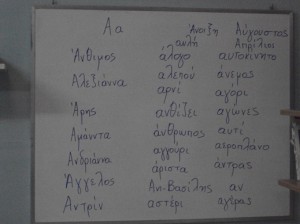 Αα Άνοιξη Αύγουστος
αυλή Απρίλιος
Άνθιμος άλογο αυτοκίνητο
Αλεξιάννα αλεπού άνεμος
αρνί αγόρι
Άρης ανθίζει αγώνες
Αμάντα άνθρωπος αυτί
αγγούρι αεροπλάνο
Ανδριάνα άριστα άντρας
Άγγελος Αη-Βασίλης αν
Αντρίν αστέρι αγέρας